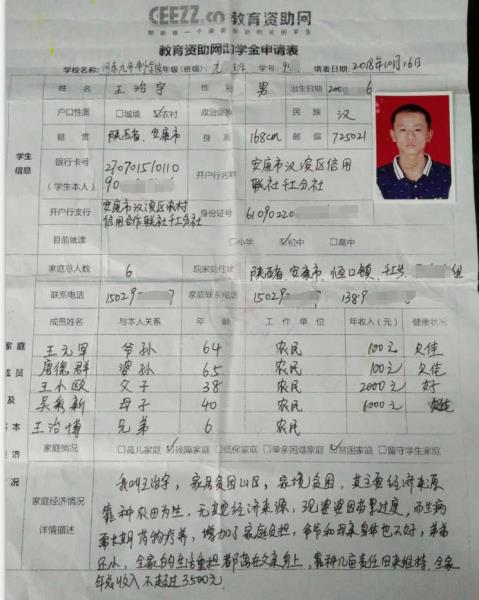 CEEZZ.cn 教育资助网
教育资助网助学金申请表
学校名称: 河东九年制学校 年级(班级): 九, 三班 学号 填表日期: 2018年10月16日
姓名 王治宇 性别 男 出生日期 6
户口性质 □城镇 ☑农村 政治面貌 民族 汉
籍贯 陕西省、安康市 身高 168cm 邮编 725021
学生信息
银行卡号 (学生本人) 2707015101109 90 开户行名称 安康市汉滨区信用联社千工分社
开户行支行 安康市汉滨区农村信用合作联社千工分社 身份证号 61090220
目前就读 □小学 ☑初中 □高中
家庭总人数 6 现家庭住址 陕西省安康市、恒口镇、千工 组
联系电话 15029 7 家庭联系电话 15029 1389
成员姓名 与本人关系 年龄 工作单位 年收入(元) 健康状况
王元军 爷孙 64 农民 100元 欠佳
唐德群 婆孙 65 农民 100元 欠佳
王小欧 父子 38 农民 2000元 好
吴彩新 母子 40 农民 1000元 欠佳
王治博 兄弟 6 农民
家庭情况 □孤儿家庭 ☑残障家庭 □低保家庭 □单亲困难家庭 ☑贫困家庭 □留守学生家庭
家庭成员及基本经济情况
家庭经济情况详情描述
我叫王治宇,家居贫困山区,家境贫困,其主要经济来源
靠种农田为生,无其它经济来源,现婆婆因劳累过度,而生病
长期药物疗养,增加了家庭负担,爷爷和母亲身体也不好,弟弟
还小,全家的生活重担都落在父亲身上,靠种几亩责任田来维持,全家
年总收入不超过3500元.